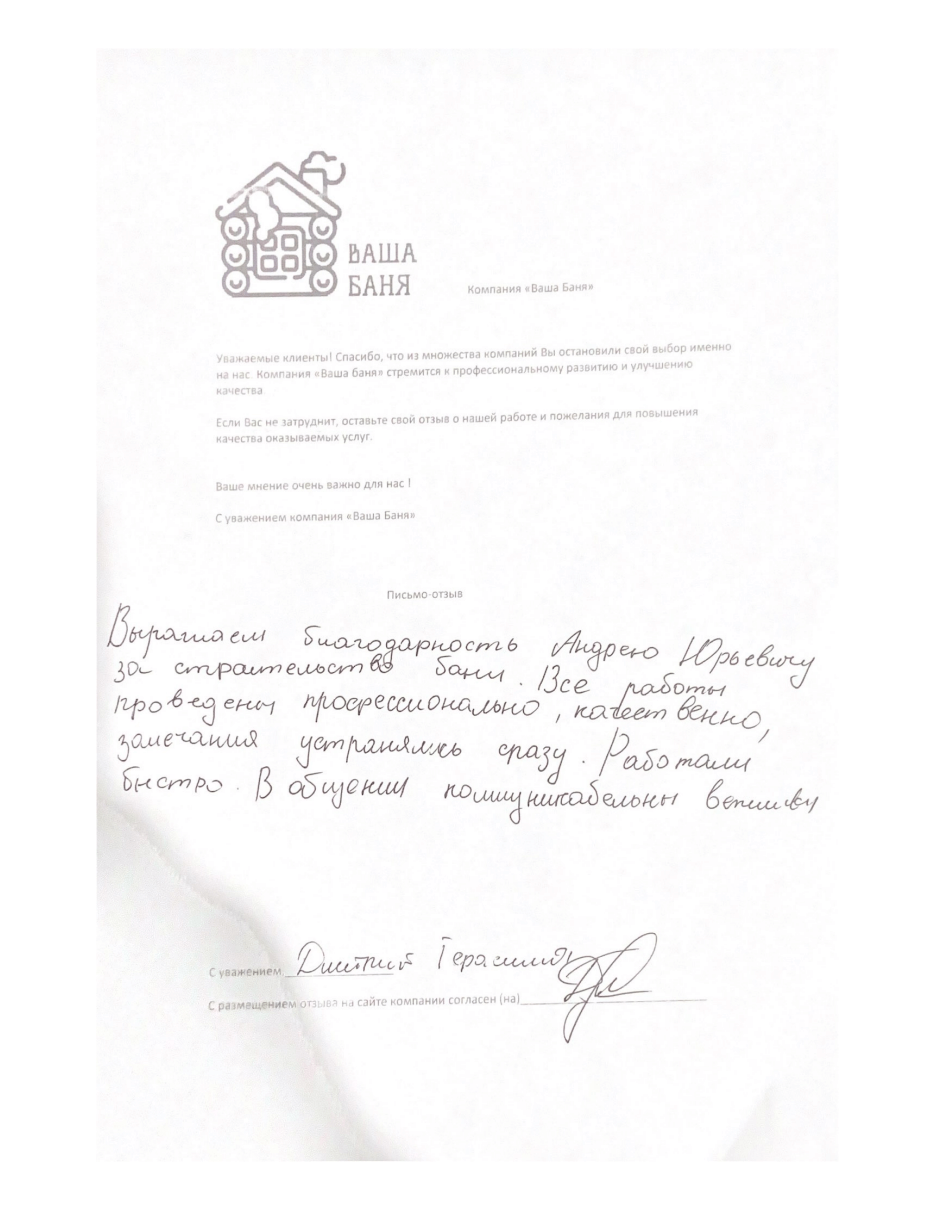 ВАША
БАНЯ
Компания «Ваша Баня»
Уважаемые клиенты! Спасибо, что из множества компаний Вы остановили свой выбор именно
на нас. Компания «Ваша баня» стремится к профессиональному развитию и улучшению
качества
Если Вас не затруднит, оставьте свой отзыв о нашей работе и пожелания для повышения
качества оказываемых услуг.
Ваше мнение очень важно для нас !
С уважением компания «Ваша Баня»
Письмо-отзыв
Выражаем благодарность Андрею Юрьевичу
за строительство бани. Все работы
проведены профессионально, качественно,
замечания устранялись сразу. Работали
быстро. В общении коммуникабельны вежливы
С уважением Дмитрий
С размещением отзыва на сайте компании согласен (на)